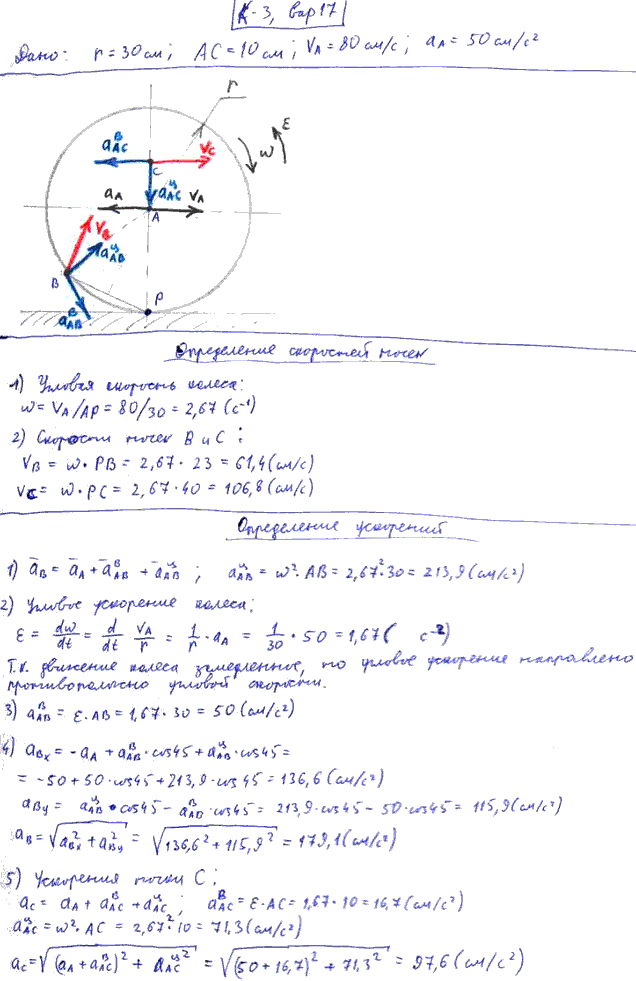 К-3, вар 17
Дано: r = 30 см; AC = 10 см; VA = 80 см/с; aA = 50 см/с²
r
ε
ω
aᴮAC
VC
C
aA
aᶣAC
VA
A
VB
aᶣAB
B
aᴮAB
P
Определение скоростей точек
1) Угловая скорость колеса:
ω = VA/AP = 80/30 = 2,67 (с⁻¹)
2) Скорости точек B и C:
VB = ω · PB = 2,67 · 23 = 61,4 (см/с)
VC = ω · PC = 2,67 · 40 = 106,8 (см/с)
Определение ускорений
1) āB = āA + āᴮAB + āᶣAB ; aᶣAB = ω² · AB = 2,67² · 30 = 213,9 (см/с²)
2) Угловое ускорение колеса;
ε = dω/dt = d/dt VA/r = 1/r · aA = 1/30 · 50 = 1,67 ( с⁻²)
Т.к. движение колеса замедленное, то угловое ускорение направлено
противоположно угловой скорости.
3) aᴮAB = ε · AB = 1,67 · 30 = 50 (см/с²)
4) aBx = -aA + aᴮAB · cos45 + aᶣAB · cos45 =
= -50 + 50 · cos45 + 213,9 · cos45 = 136,6 (см/с²)
aBy = aᶣAB · cos45 - aᴮAB · cos45 = 213,9 · cos45 - 50 · cos45 = 115,9 (см/с²)
aB = √(a²Bx + a²By) = √(136,6² + 115,9²) = 179,1 (см/с²)
5) Ускорения точки C;
aC = aA + aᴮAC + aᶣAC ; aᴮAC = ε · AC = 1,67 · 10 = 16,7 (см/с²)
aᶣAC = ω² · AC = 2,67² · 10 = 71,3 (см/с²)
aC = √((aA + aᴮAC)² + aᶣAC²) = √((50 + 16,7)² + 71,3²) = 97,6 (см/с²)